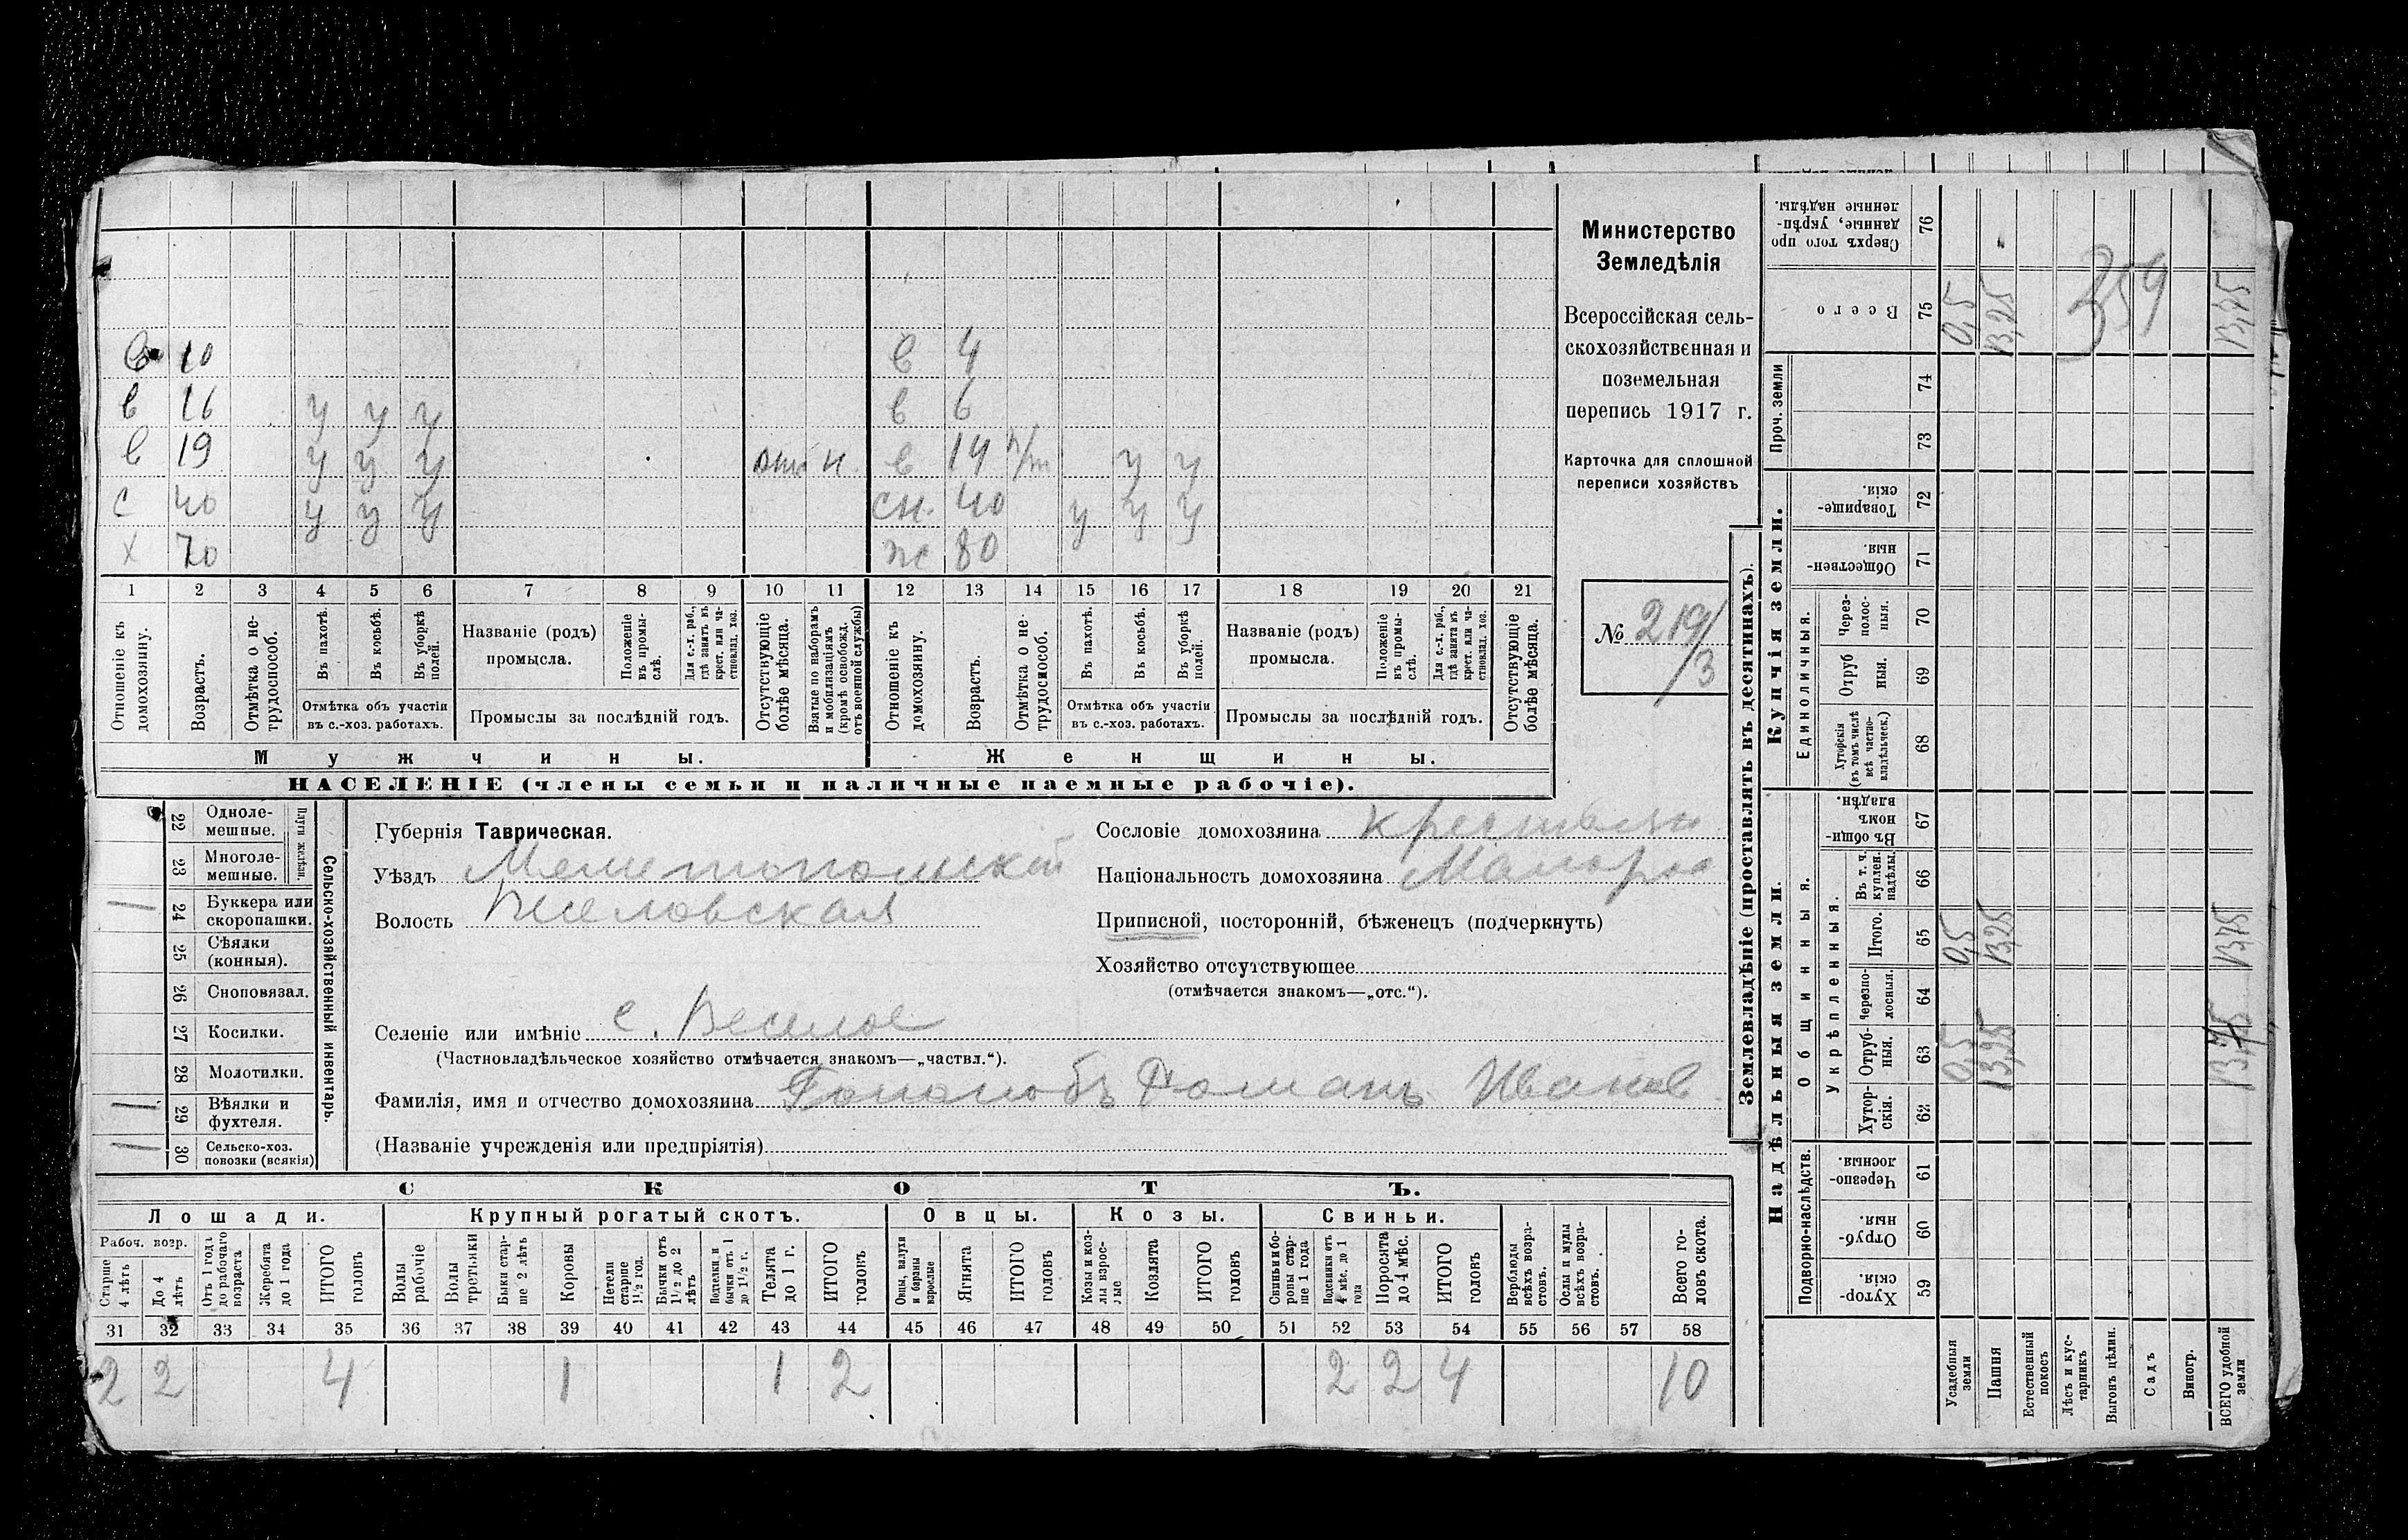 в 10 в 4
в 16 у у у в 6
в 19 у у у н. в 14 п/т у у
с 40 у у у сн. 40 у у у
х 70 ж 80
1 2 3 4 5 6 7 8 9 10 11 12 13 14 15 16 17 18 19 20 21
Отношеніе къ домохозяину.
Возрастъ.
Отмѣтка о нетрудоспособ.
Въ пахотѣ.
Въ косьбѣ.
Въ уборкѣ полей.
Отмѣтка объ участіи въ с.-хоз. работахъ.
Названіе (родъ) промысла.
Положеніе въ промыслѣ.
Для с.-х. раб., гдѣ занятъ въ крест. или частновлад. хоз.
Промыслы за послѣдній годъ.
Отсутствующіе болѣе мѣсяца.
Взятые по наборамъ и мобилизаціямъ (кромѣ освобожд. отъ военной службы)
Отношеніе къ домохозяину.
Возрастъ.
Отмѣтка о нетрудоспособ.
Въ пахотѣ.
Въ косьбѣ.
Въ уборкѣ полей.
Отмѣтка объ участіи въ с.-хоз. работахъ.
Названіе (родъ) промысла.
Положеніе въ промыслѣ.
Для с.-х. раб., гдѣ занята въ крест. или частновлад. хоз.
Промыслы за послѣдній годъ.
Отсутствующіе болѣе мѣсяца.
Мужчины.
Женщины.
НАСЕЛЕНІЕ (члены семьи и наличные наемные рабочіе).
Министерство
Земледѣлія
Всероссійская сель-
скохозяйственная и
поземельная
перепись 1917 г.
Карточка для сплошной
переписи хозяйствъ
№ 219/
/3
22 Одноле-
мешные.
23 Многоле-
мешные.
Плуги желѣзн.
24 Буккера или
скоропашки.
25 Сѣялки
(конныя).
26 Сноповязал.
27 Косилки.
28 Молотилки.
29 Вѣялки и
фухтеля.
30 Сельско-хоз.
повозки (всякія)
Сельско-хозяйственный инвентарь.
Губернія Таврическая.
Уѣздъ Мелитопольскій
Волость Веселовская
Селеніе или имѣніе с. Веселое
(Частновладѣльческое хозяйство отмѣчается знакомъ—„частвл.“).
Фамилія, имя и отчество домохозяина Романъ Иванов
(Названіе учрежденія или предпріятія)
Сословіе домохозяина крестьян
Національность домохозяина Малорос
Приписной, посторонній, бѣженецъ (подчеркнуть)
Хозяйство отсутствующее
(отмѣчается знакомъ—„отс.“).
СКОТЪ.
Лошади. Крупный рогатый скотъ. Овцы. Козы. Свиньи.
Рабоч. возр.
Старше 4 лѣтъ
До 4 лѣтъ
Отъ 1 года до рабочаго возраста
Жеребята до 1 года
ИТОГО головъ
Волы рабочіе
Волы третьяки
Быки старше 2 лѣтъ
Коровы
Нетели старше 1½ год.
Бычки отъ 1½ до 2 лѣтъ
Подтелки и бычки отъ 1 до 1½ г.
Телята до 1 г.
ИТОГО головъ
Овцы, валухи и бараны взрослые
Ягнята
ИТОГО головъ
Козы и козлы взрослые
Козлята
ИТОГО головъ
Свиньи и боровы старше 1 года
Подсвинки отъ 4 мѣс. до 1 года
Поросята до 4 мѣс.
ИТОГО головъ
Верблюды всѣхъ возрастовъ.
Ослы и мулы всѣхъ возрастовъ.
Всего головъ скота.
31 32 33 34 35 36 37 38 39 40 41 42 43 44 45 46 47 48 49 50 51 52 53 54 55 56 57 58
2 2 4 1 1 2 2 2 4 10
Землевладѣніе (проставлять въ десятинахъ).
Сверхъ того проданные, укрѣпленные надѣлы. 76
Всего 75 0,5 13,25 13,75
359
Проч. земли
74
73
Купчія земли.
Товарищескія. 72
Общественныя 71
Единоличныя.
Черезполосныя. 70
Отрубныя. 69
Хуторскія (въ томъ числѣ всѣ частновладѣльческ.) 68
Надѣльныя земли.
Общинныя.
Въ общинномъ владѣн. 67
Укрѣпленныя.
Въ т. ч. куплен. надѣлы. 66
Итого. 65 0,5 13,25 13,75
Черезполосныя. 64
Отрубныя. 63 0,5 13,25 13,75
Хуторскія. 62
Подворно-наслѣдств.
Черезполосныя. 61
Отрубныя. 60
Хуторскія. 59
Усадебныя земли
Пашня
Естественный покосъ
Лѣсъ и кустарникъ
Выгонъ цѣлин.
Садъ
Виногр.
ВСЕГО удобной земли